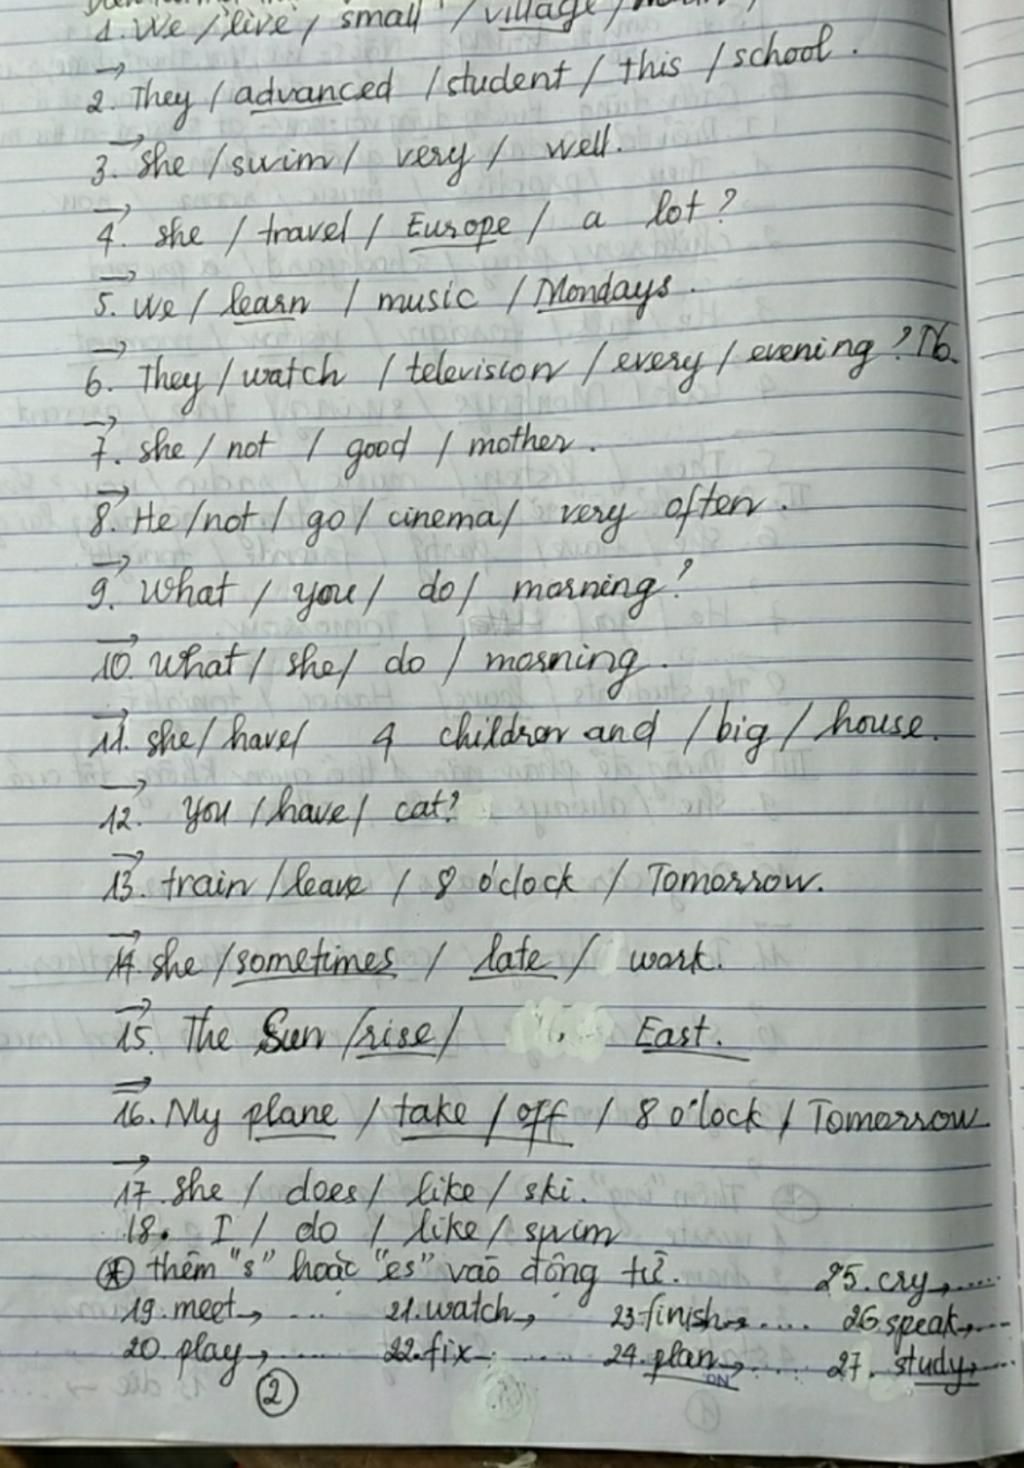 1. We / live / small / village /
→
2. They / advanced / student / this / school.
→
3. She / swim / very / well.
→
4. she / travel / Europe / a lot?
→
5. We / learn / music / Mondays.
→
6. They / watch / television / every / evening?
→
7. she / not / good / mother.
→
8. He / not / go / cinema / very often.
→
9. What / you / do / morning?
→
10. What / she / do / morning.
→
11. she / have / 4 children and / big / house.
→
12. you / have / cat?
→
13. train / leave / 8 o'clock / Tomorrow.
→
14. she / sometimes / late / work.
→
15. The Sun / rise / East.
→
16. My plane / take / off / 8 o'lock / Tomorrow
→
17. she / does / like / ski.
18. I / do / like / swim
* thêm "s" hoặc "es" vào động từ. 25. cry→.....
19. meet→ .... 21. watch→ 23. finish→.... 26. speak→....
20. play→ ..... 22. fix→ ..... 24. plan→..... 27. study→....
2